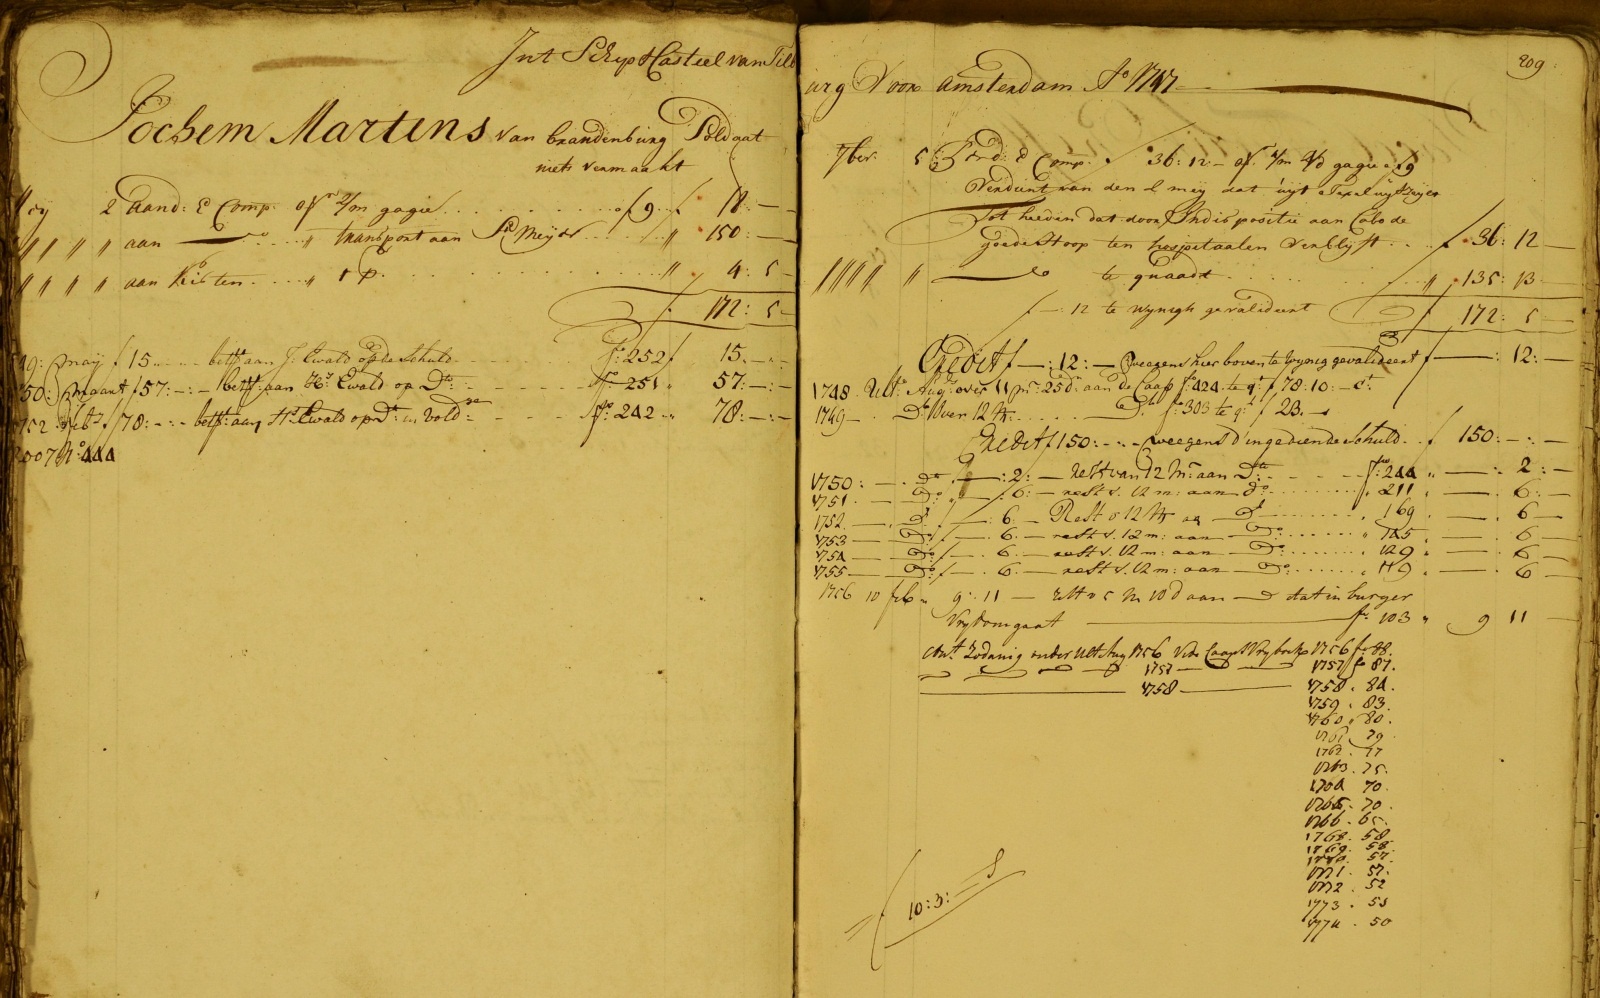 Int Schip t Casteel van Tilb
Jochem Martens van brandenburg Soldaat
niets vermaakt
Mey 2 aand: E Comp: of 2/m gagie f 9 f 18: —
" " " " aan transport aan S Meijer " 150: —
" " " " aan kisten " 1 p. " 4: 5 —
f 172: 5 —
49: maij f 15 bett aan J: Ewald op de schuld f: 252 f 15. —
50: maart f 57: —: — bett: aan Hr: Ewald op Do: f: 251 " 57: —: —
1752 feb f 78: —: — bett: aan Hr Ewald op Do in vold: fo: 242 " 78: —: —
2007 No: 444
209
urg Voor amsterdam Ao 1747
7ber: 5 E Comp: f 36: 12 — of 4/m 2/d gagie a f 9
Verdient van den 2 meij dat uijt Texel
Tot heeden dat door Indispositie aan Cabo de
goede Hoop ten hospitaalen verblijft f 36: 12 —
" " " " " te quaadt " 135: 13 —
f —: 12 te wijnigh gevalideert f 172: 5 —
Credit f —: 12: — weegens hier boven te wijnig gevalideert f —: 12: —
1748 Ulto Aug over 11 m: 25 d: aan de Caap fo 424 te q: f 78: 10: —
1749 — Do over 12 m: Do fo: 303 te q: f 23: —
Credit f 150: —: — weegens d' ingediende schuld f 150: —: —
1750: — Do f —: 2: — rest van 12 m: aan Do: fo: 244 " — 2: —
1751 — Do: " —: 6: — rest v. 12 m: aan Do: " 211 " — 6: —
1752 — Do f —: 6: — Rest v 12 m aan Do " 169 " — 6 —
1753 — Do: f —: 6: — rest v. 12 m: aan Do: " 145 " — 6 —
1754 — Do: f —: 6: — rest v. 12 m: aan Do: " 129 " — 6 —
1755 — Do: f —: 6: — rest v. 12 m: aan Do: " 119 " — 6 —
1756 10 feb " 9: 11 — rest v 5 m 10 d aan Do dat in burger
Vrijdom gaat fo 103 " 9 11 —
Cont: Zodanig onder Ulto Aug 1756 Vide Caaps Vrijboek 1756 fo 88.
1757 1757 fo 87.
1758 1758 . 84.
1759 . 83.
1760 . 80.
1761 . 79.
1762 . 77
1763 . 75.
1764 70.
1765 . 70.
1766 . 65.
1768 . 58
1769 . 58.
1770 . 57.
1771 . 57.
1772 . 52
1773 . 53
1774 . 50
f 10: 3: —